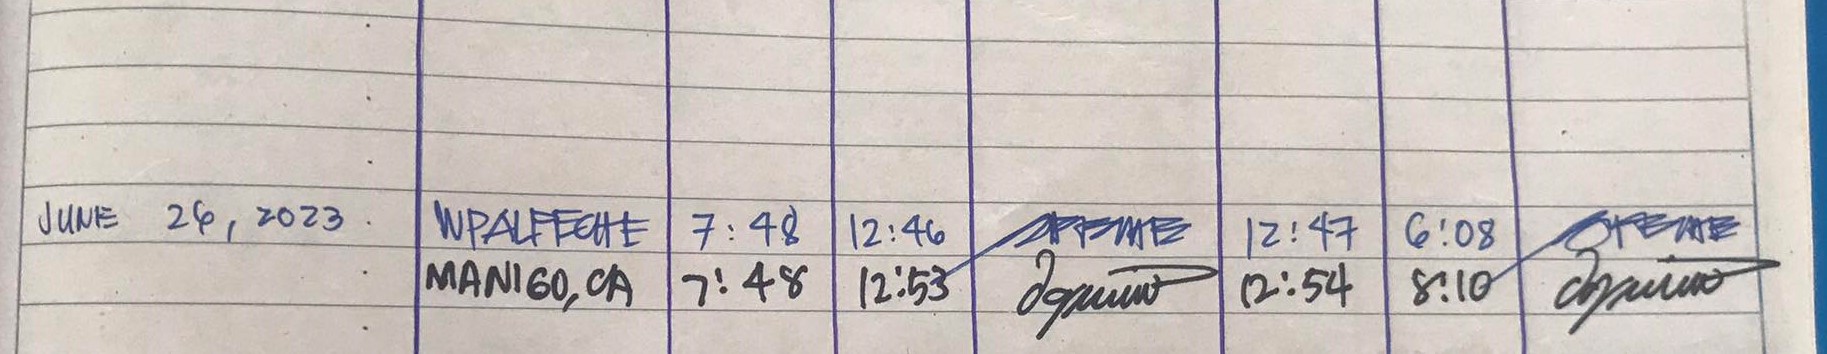 JUNE 26, 2023. WPALFECHE 7:48 12:46 12:47 6:08
MANIGO, CA 7:48 12:53 12:54 8:10